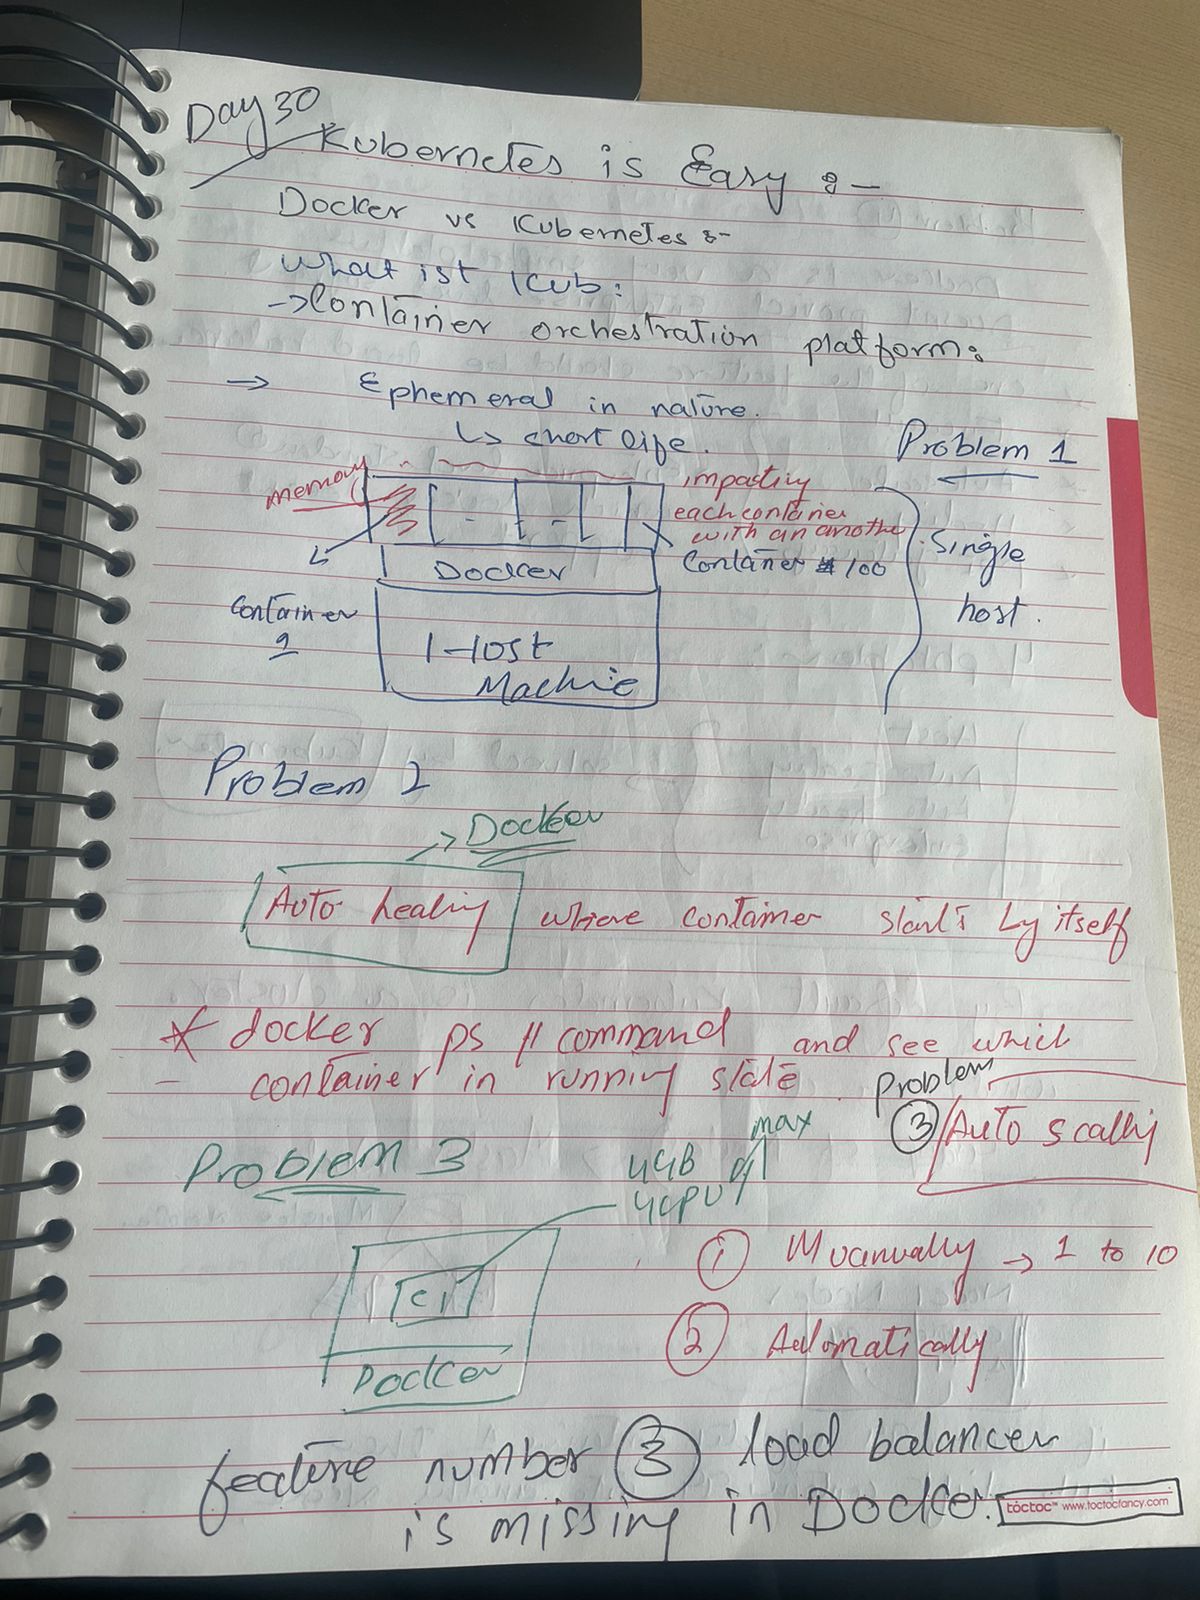 Day 30
Kubernetes is Easy :-
Docker vs Kubernetes :-
What ist Kub:
-> Container orchestration platform:
-> Ephemeral in nature.
↳ short life.
Problem 1
memory
impacting
each container
with an another
Container 100
Single
host.
Docker
Container
1
Host
Machine
Problem 2
-> Docker
Auto healing where container starts by itself
* docker ps // command and see which
- container in running state
Problem
③ Auto scaling
Problem 3
max
4GB
4CPU
C1
Docker
① Muanually -> 1 to 10
② Automatically
feature number ③ load balancer
is missing in Docker.
tóctoc™ www.toctocfancy.com